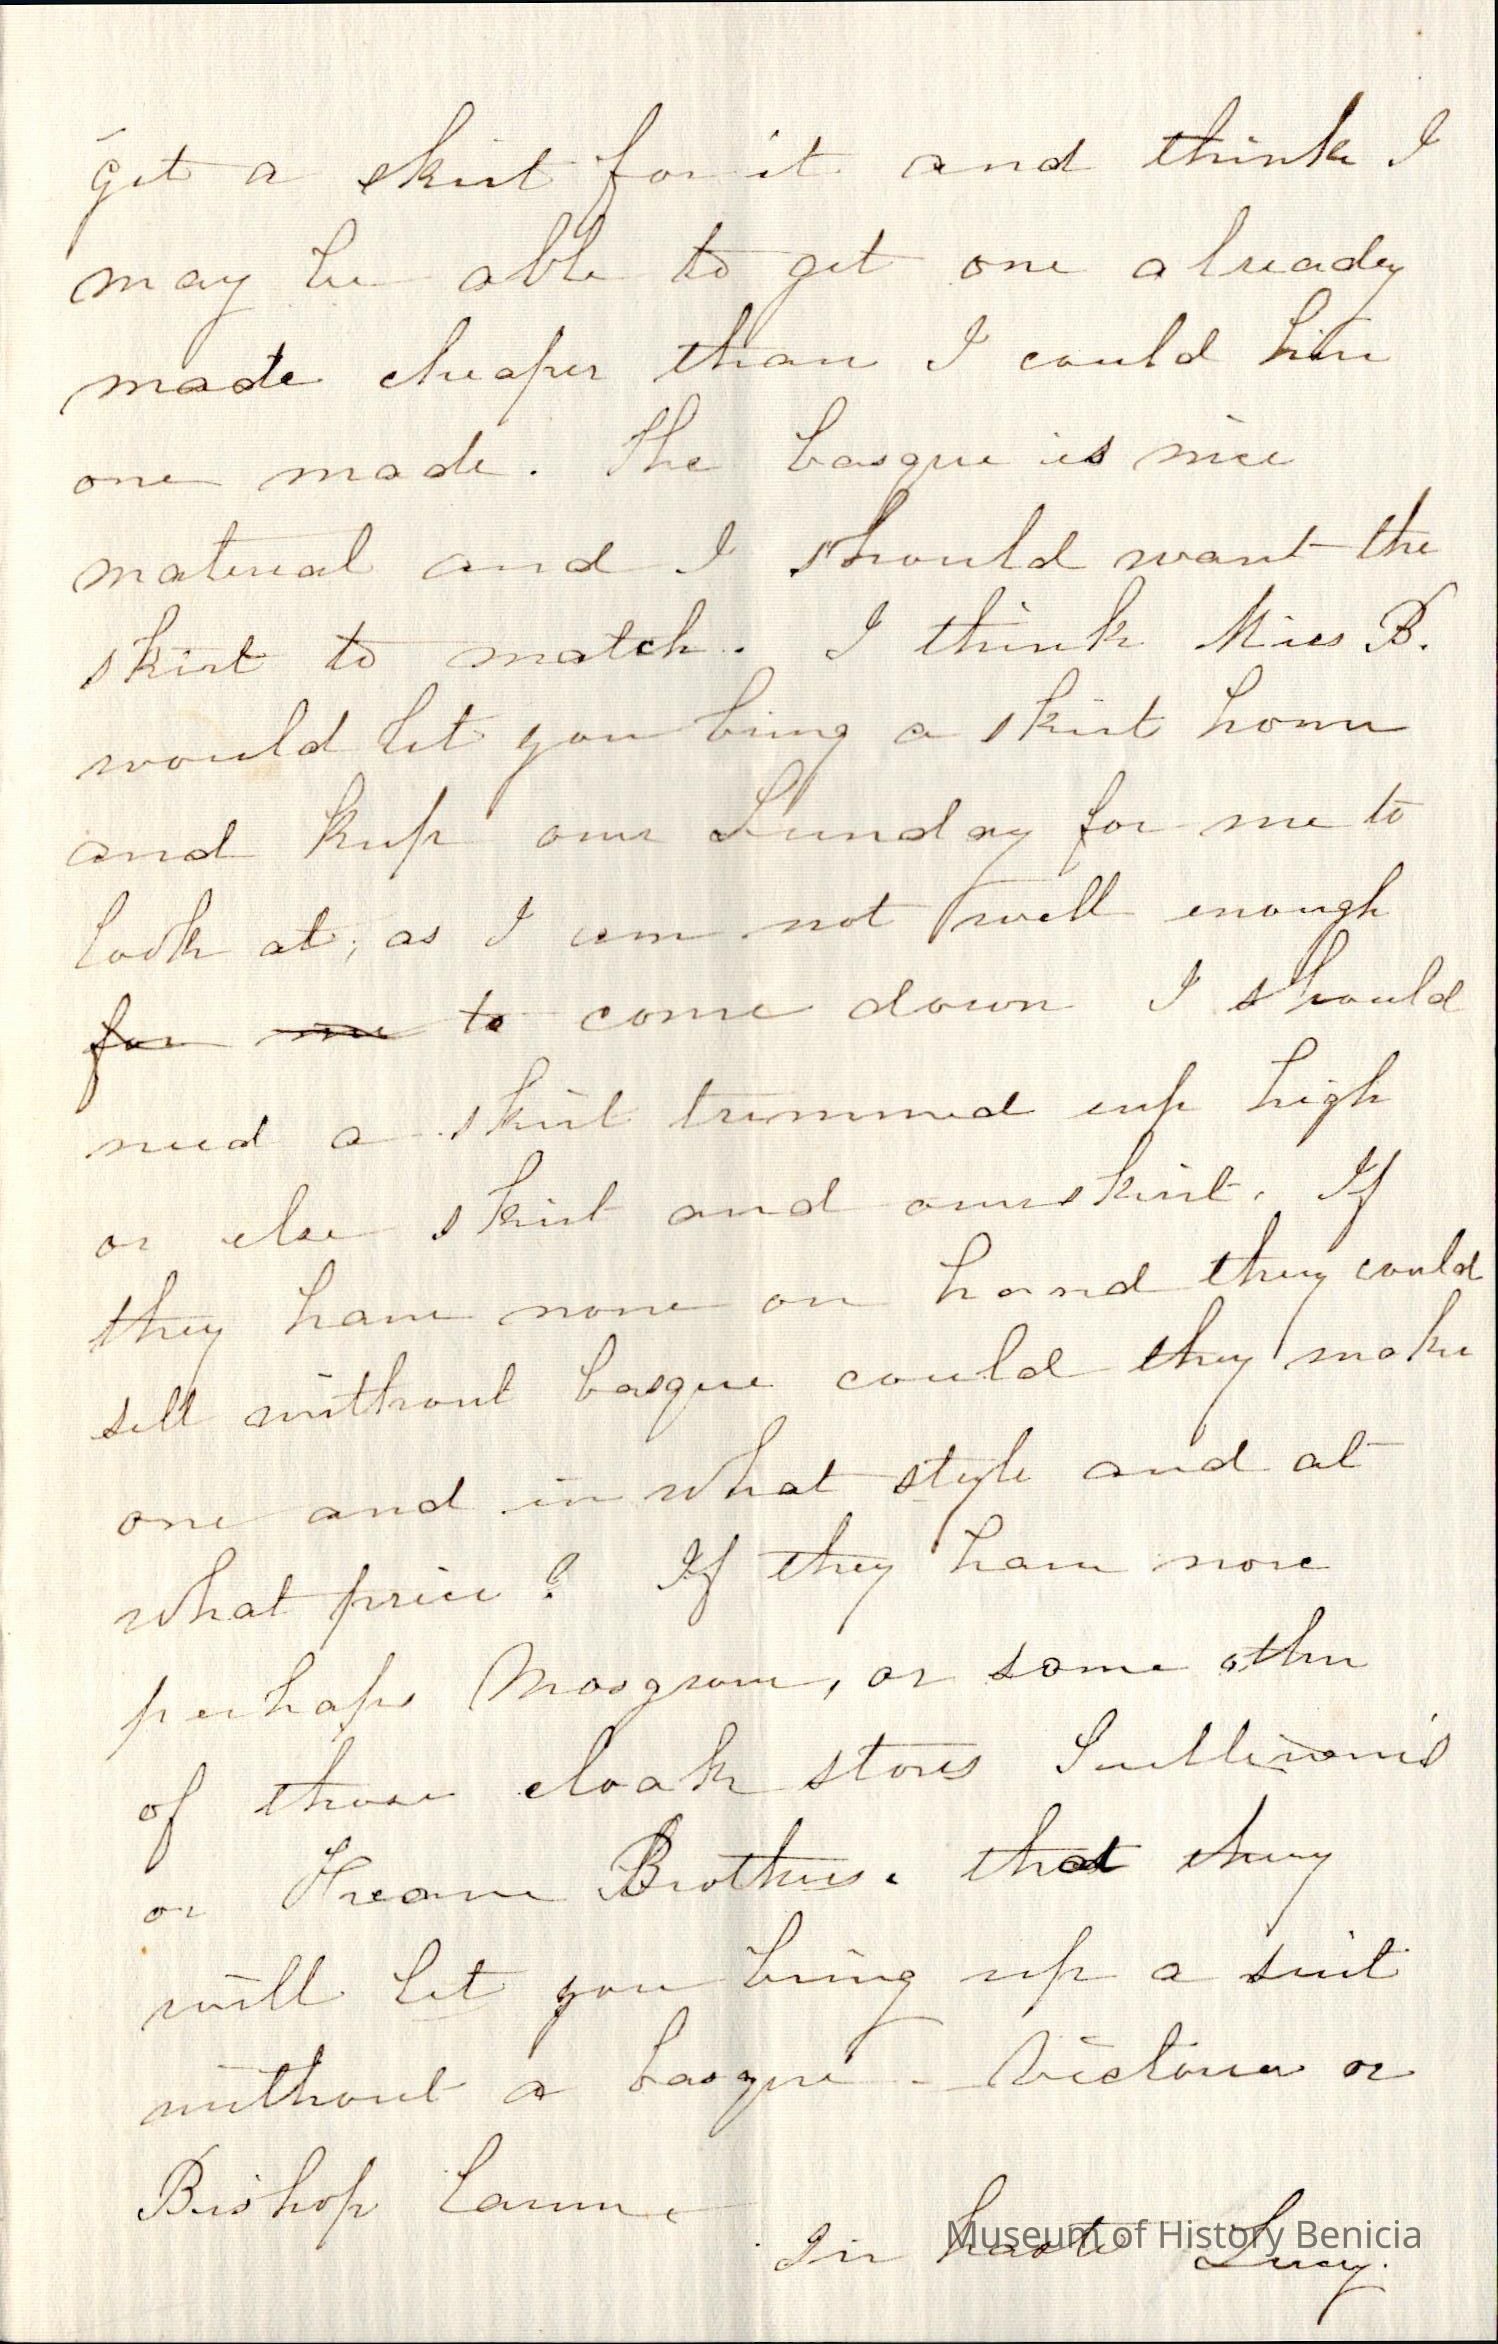 get a skirt for it and think I
may be able to get one already
made cheaper than I could hire
one made. The basque is nice
material and I should want the
skirt to match. I think Miss B.
would let you bring a skirt home
and keep over Sunday for me to
look at, as I am not well enough
for me to come down I should
need a skirt trimmed up high
or else skirt and overskirt. If
they have none on hand they could
sell without basque could they make
one and in what style and at
what price? If they have none
perhaps Mosgrove, or some other
of those cloak stores Sullivan's
or Keane Brothers. that they
will let you bring up a suit
without a basque - Victoria or
Bishop Lawn.
In haste Lucy.
Museum of History Benicia